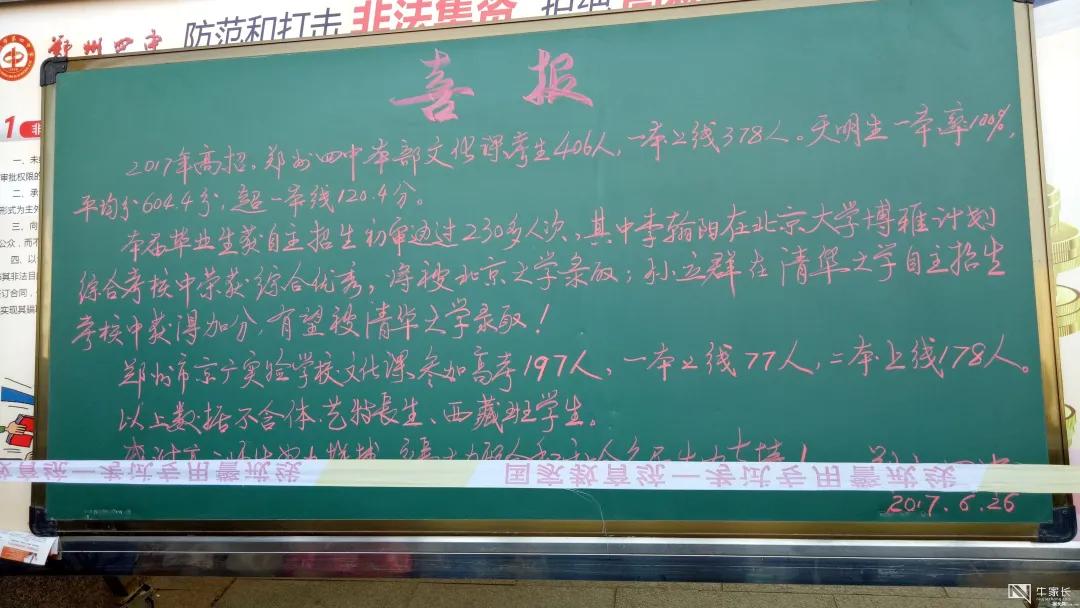 郑州四中 防范和打击 非法集资
喜报
2017年高招,郑州四中本部文化课考生406人,一本上线378人。天明生一本率100%,
平均分604.4分,超一本线120.4分。
本届毕业生获自主招生初审通过230多人次,其中李翰阳在北京大学博雅计划
综合考核中荣获综合优秀,将被北京大学录取;孙立群在清华大学自主招生
考核中获得加分,有望被清华大学录取!
郑州市京广实验学校文化课参加高考197人,一本上线77人,二本上线178人。
以上数据不含体、艺特长生、西藏班学生。
教育统一考试专用警戒线
国家教育统一考试专用警戒线
2017.6.26
1 非
一、未
审批权限的
二、承
形式为主外
三、向
公众,而不
四、以
其非法目
订合同,
实现其骗
牛家长